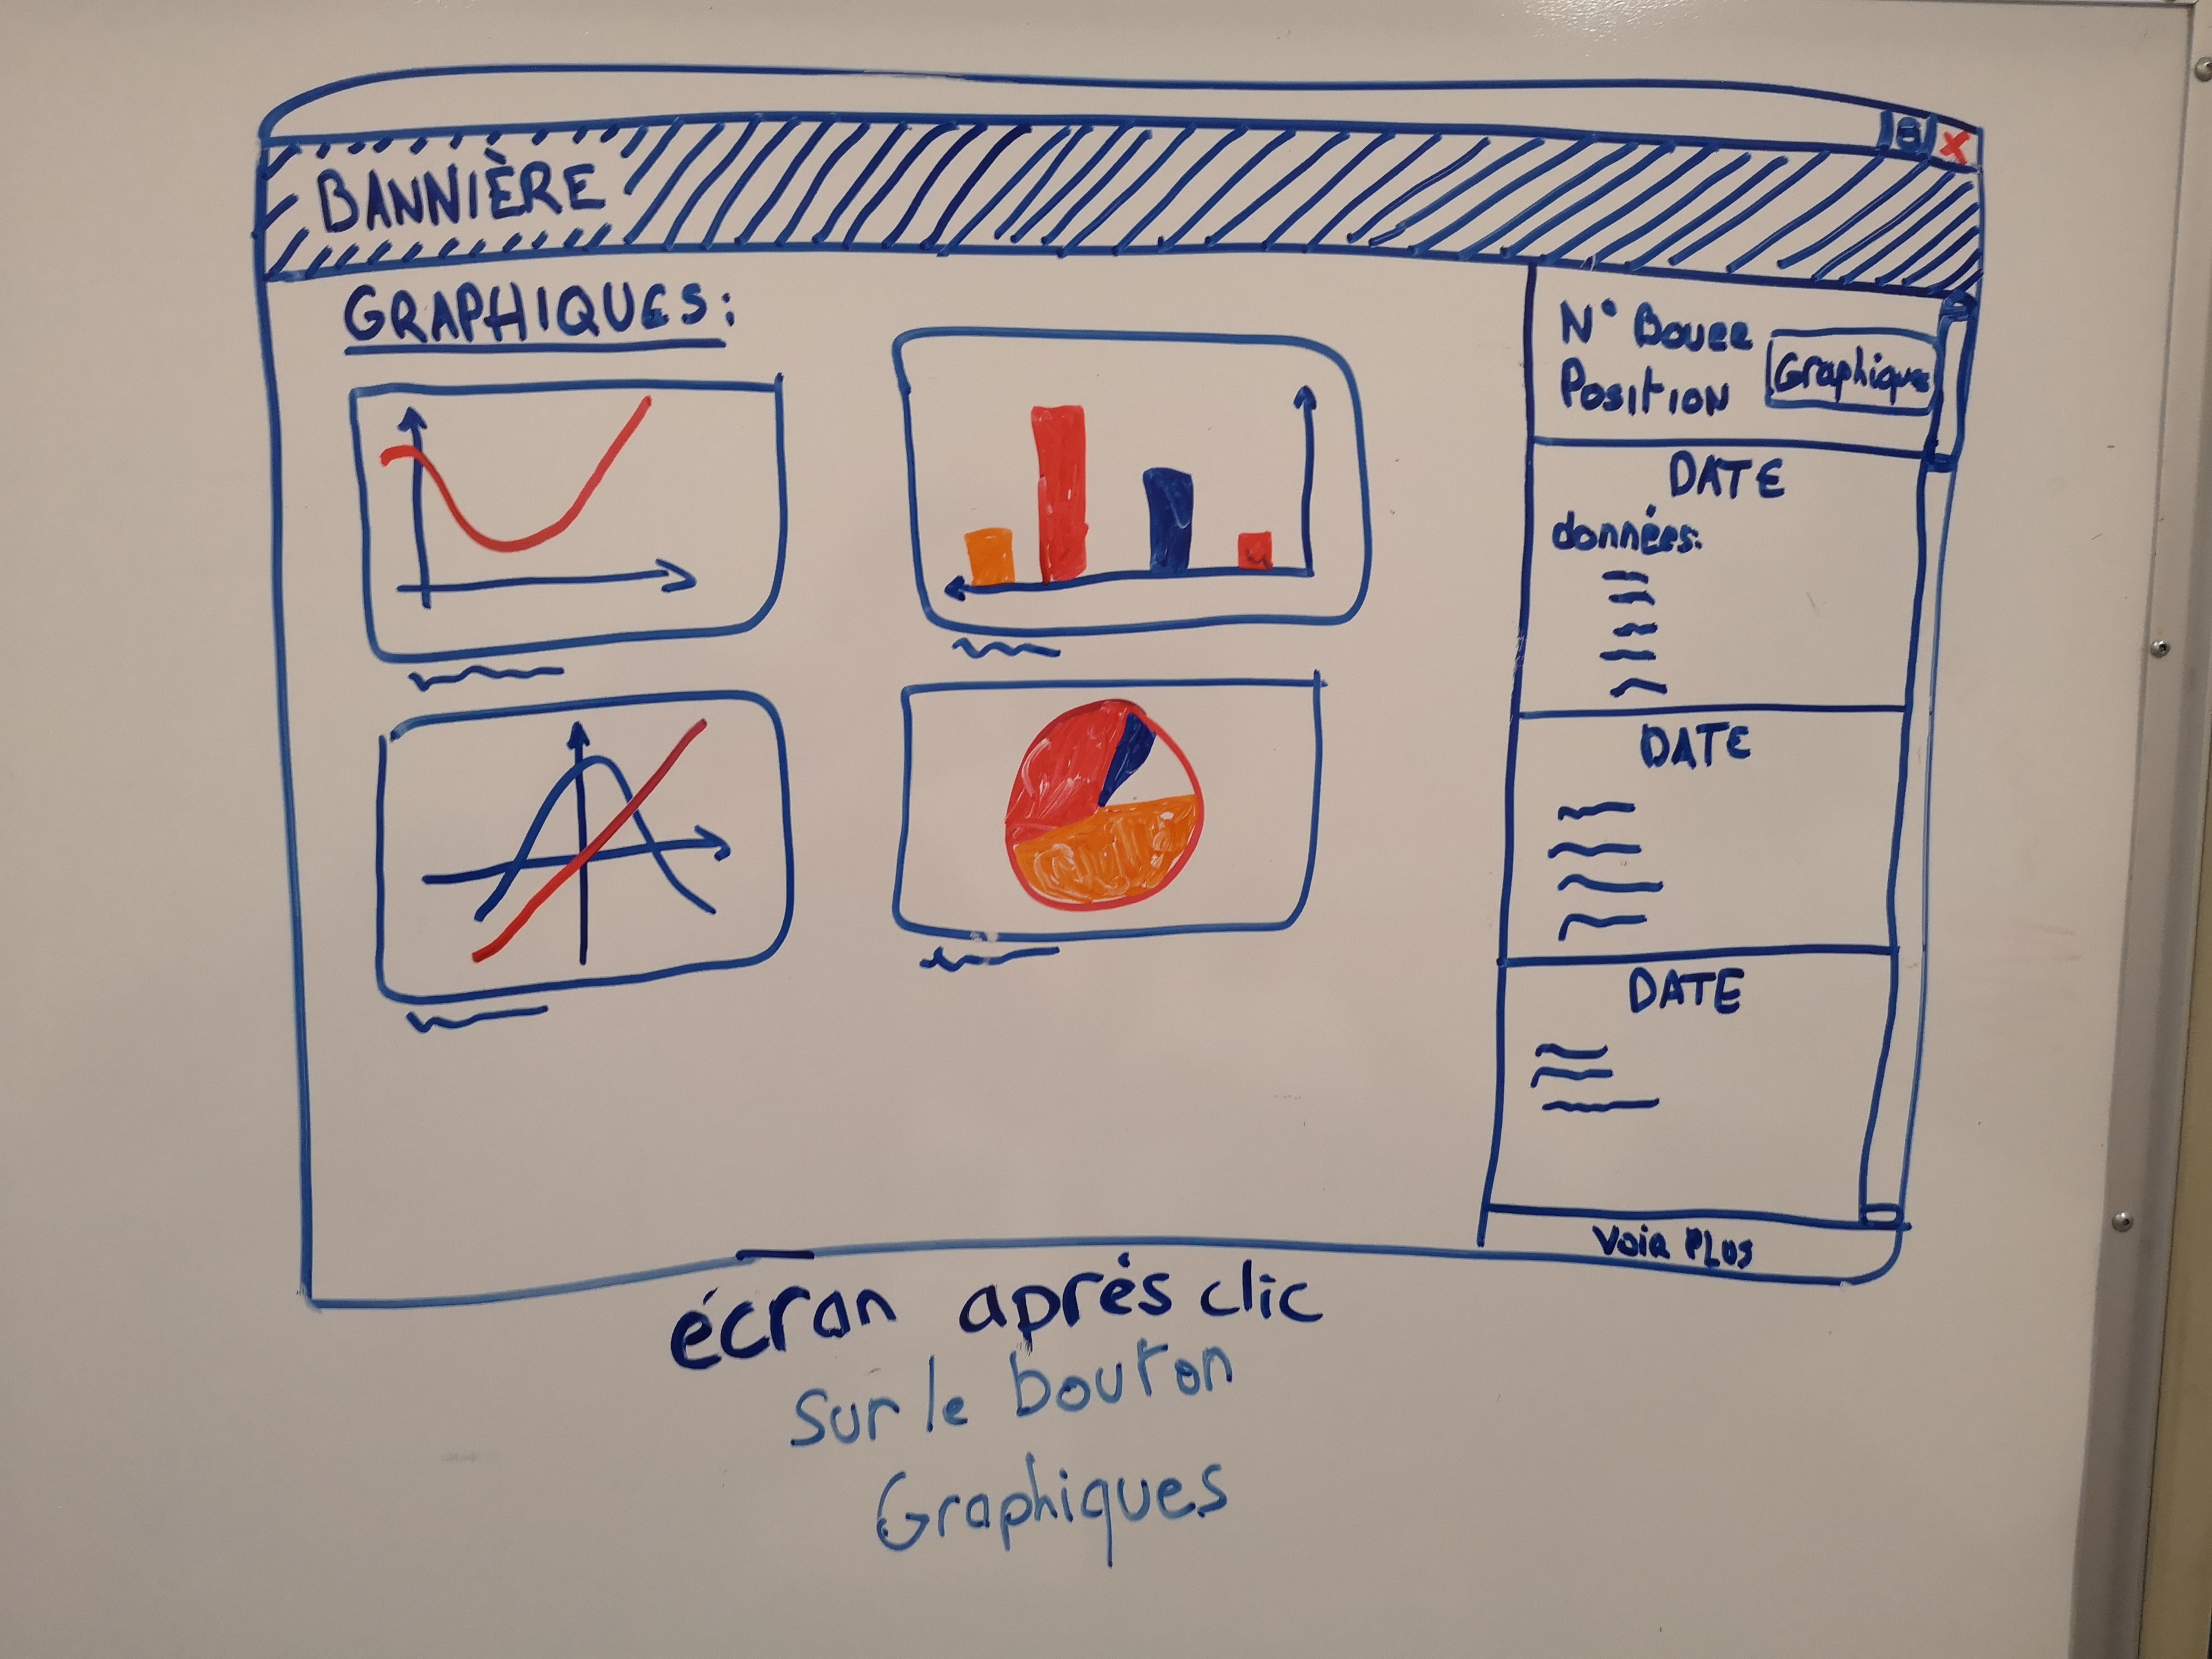 BANNIÈRE
GRAPHIQUES:
N° Bouee
Position
Graphiques
DATE
données:
DATE
DATE
Voir PLUS
écran après clic
sur le bouton
Graphiques